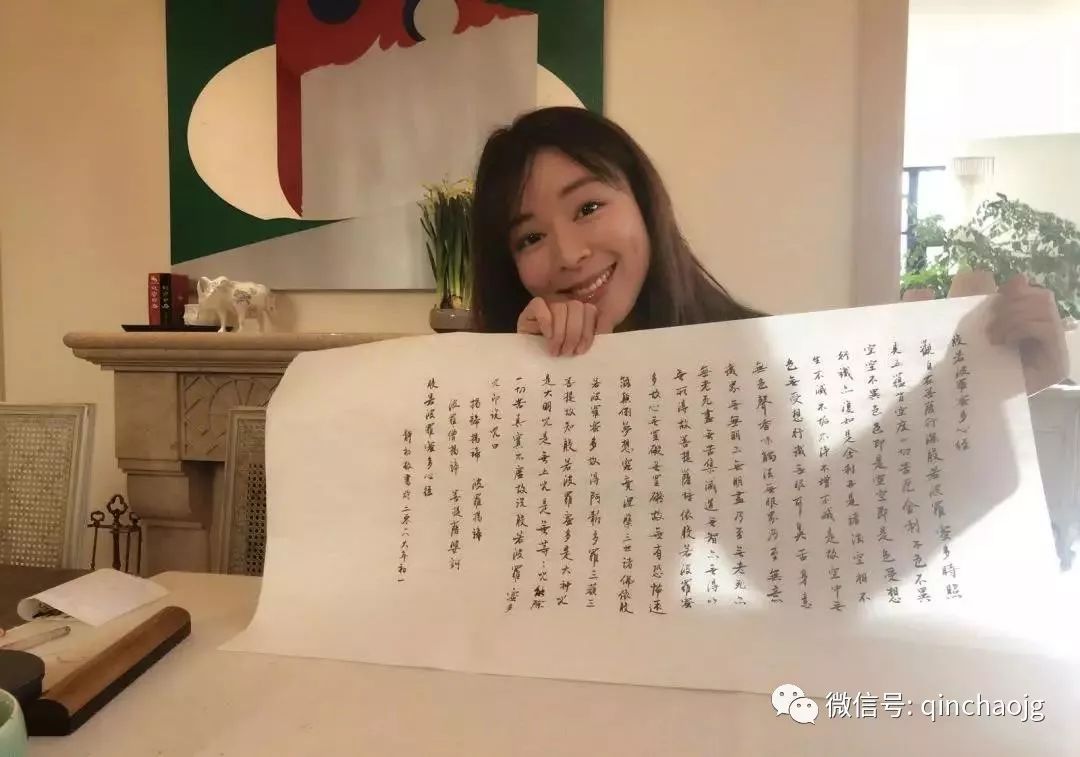 般若波羅蜜多心經
觀自在菩薩行深般若波羅蜜多時照
見五蘊皆空度一切苦厄舍利子色不異
空空不異色色即是空空即是色受想
行識亦復如是舍利子是諸法空相不
生不滅不垢不淨不增不減是故空中無
色無受想行識無眼耳鼻舌身意
無色聲香味觸法無眼界乃至無意
識界無無明亦無明盡乃至無老死亦
無老死盡無苦集滅道無智亦無得以
無所得故菩提薩埵依般若波羅蜜
多故心無罣礙無罣礙故無有恐怖遠
離顛倒夢想究竟涅槃三世諸佛依般
若波羅蜜多故得阿耨多羅三藐三
菩提故知般若波羅蜜多是大神咒
是大明咒是無上咒是無等=咒能除
一切苦真實不虛故說般若波羅蜜多
咒即說咒曰
揭諦揭諦 波羅揭諦
波羅僧揭諦 菩提薩婆訶
般若波羅蜜多心經
敬書於 年初一
微信号: qinchaojg